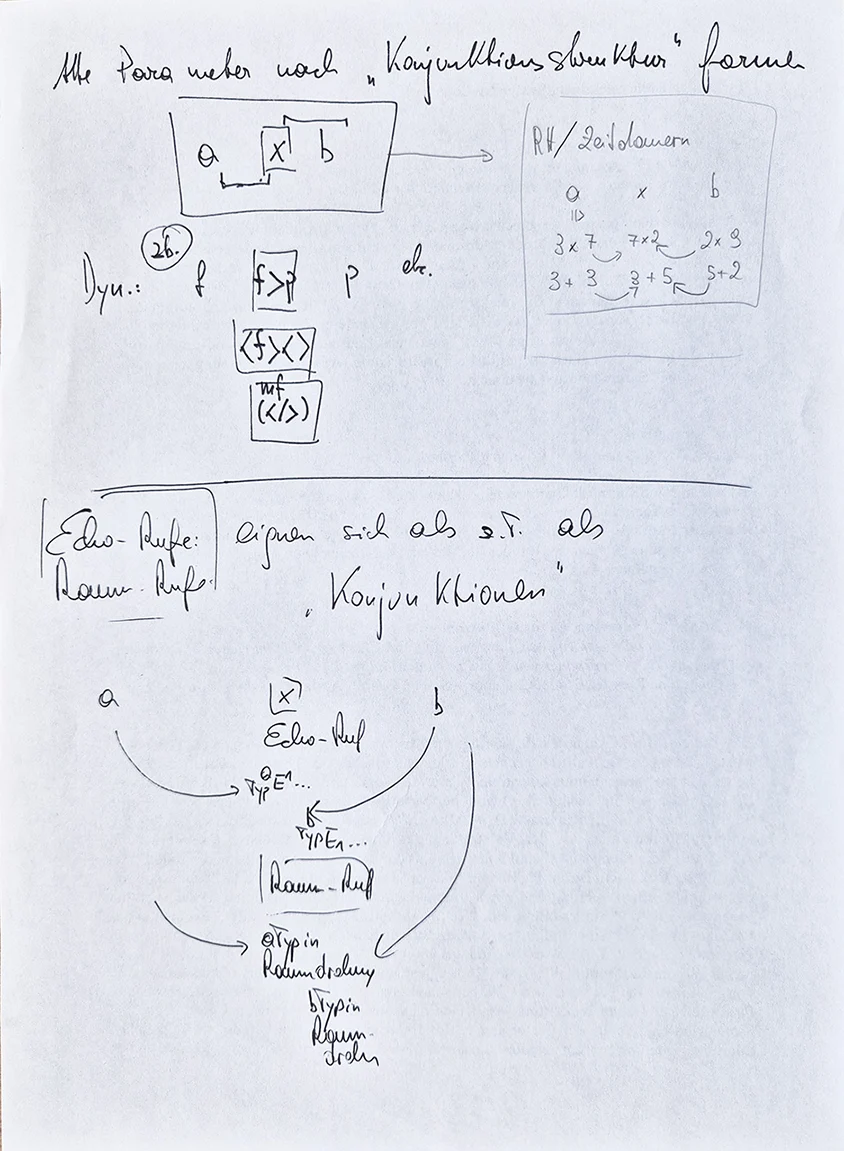 Alle Parameter nach „Konjunktionsstruktur" formen
a x b
RH/Zeitdauern
a x b
3 x 7 7 x 2 2 x 9
3 + 3 3 + 5 5 + 2
zb.
Dyn.: f f>p p etc.
<f><>
mf
(</>)
Echo-Rufe: eignen sich als z.T. als
Raum-Rufe: „Konjunktionen"
a x b
Echo-Ruf
a
Typ E1...
b
Typ E1...
Raum-Ruf
a Typ in
Raumdrehung
b Typ in
Raum-
dreh